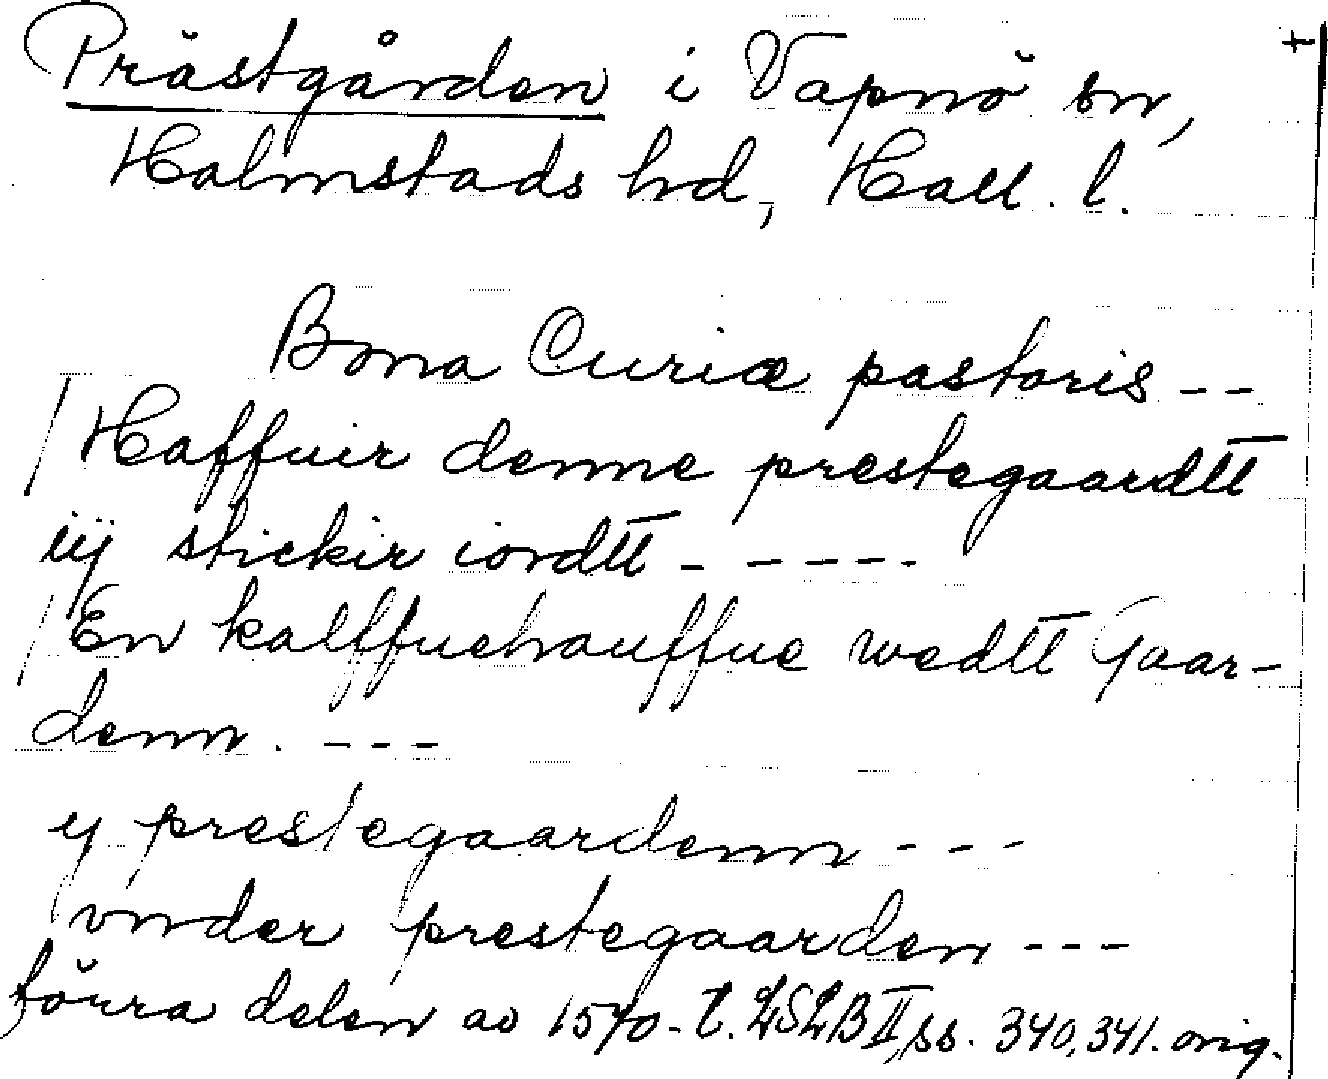 Prästgården i Vapnö sn,
Halmstads hd, Hall. l.
Bona Curiæ pastoris --
Haffuir denne prestegaardtt
iij stickir iordtt -----
En kalffuehauffue wedtt Gaar-
denn. ---
y prestegaardenn ---
vnder prestegaarden ---
förra delen av 1570-t. LSLB II, ss. 340, 341. orig.